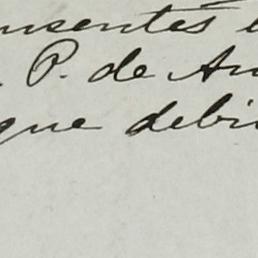 nsentes e
P. de An
que debi